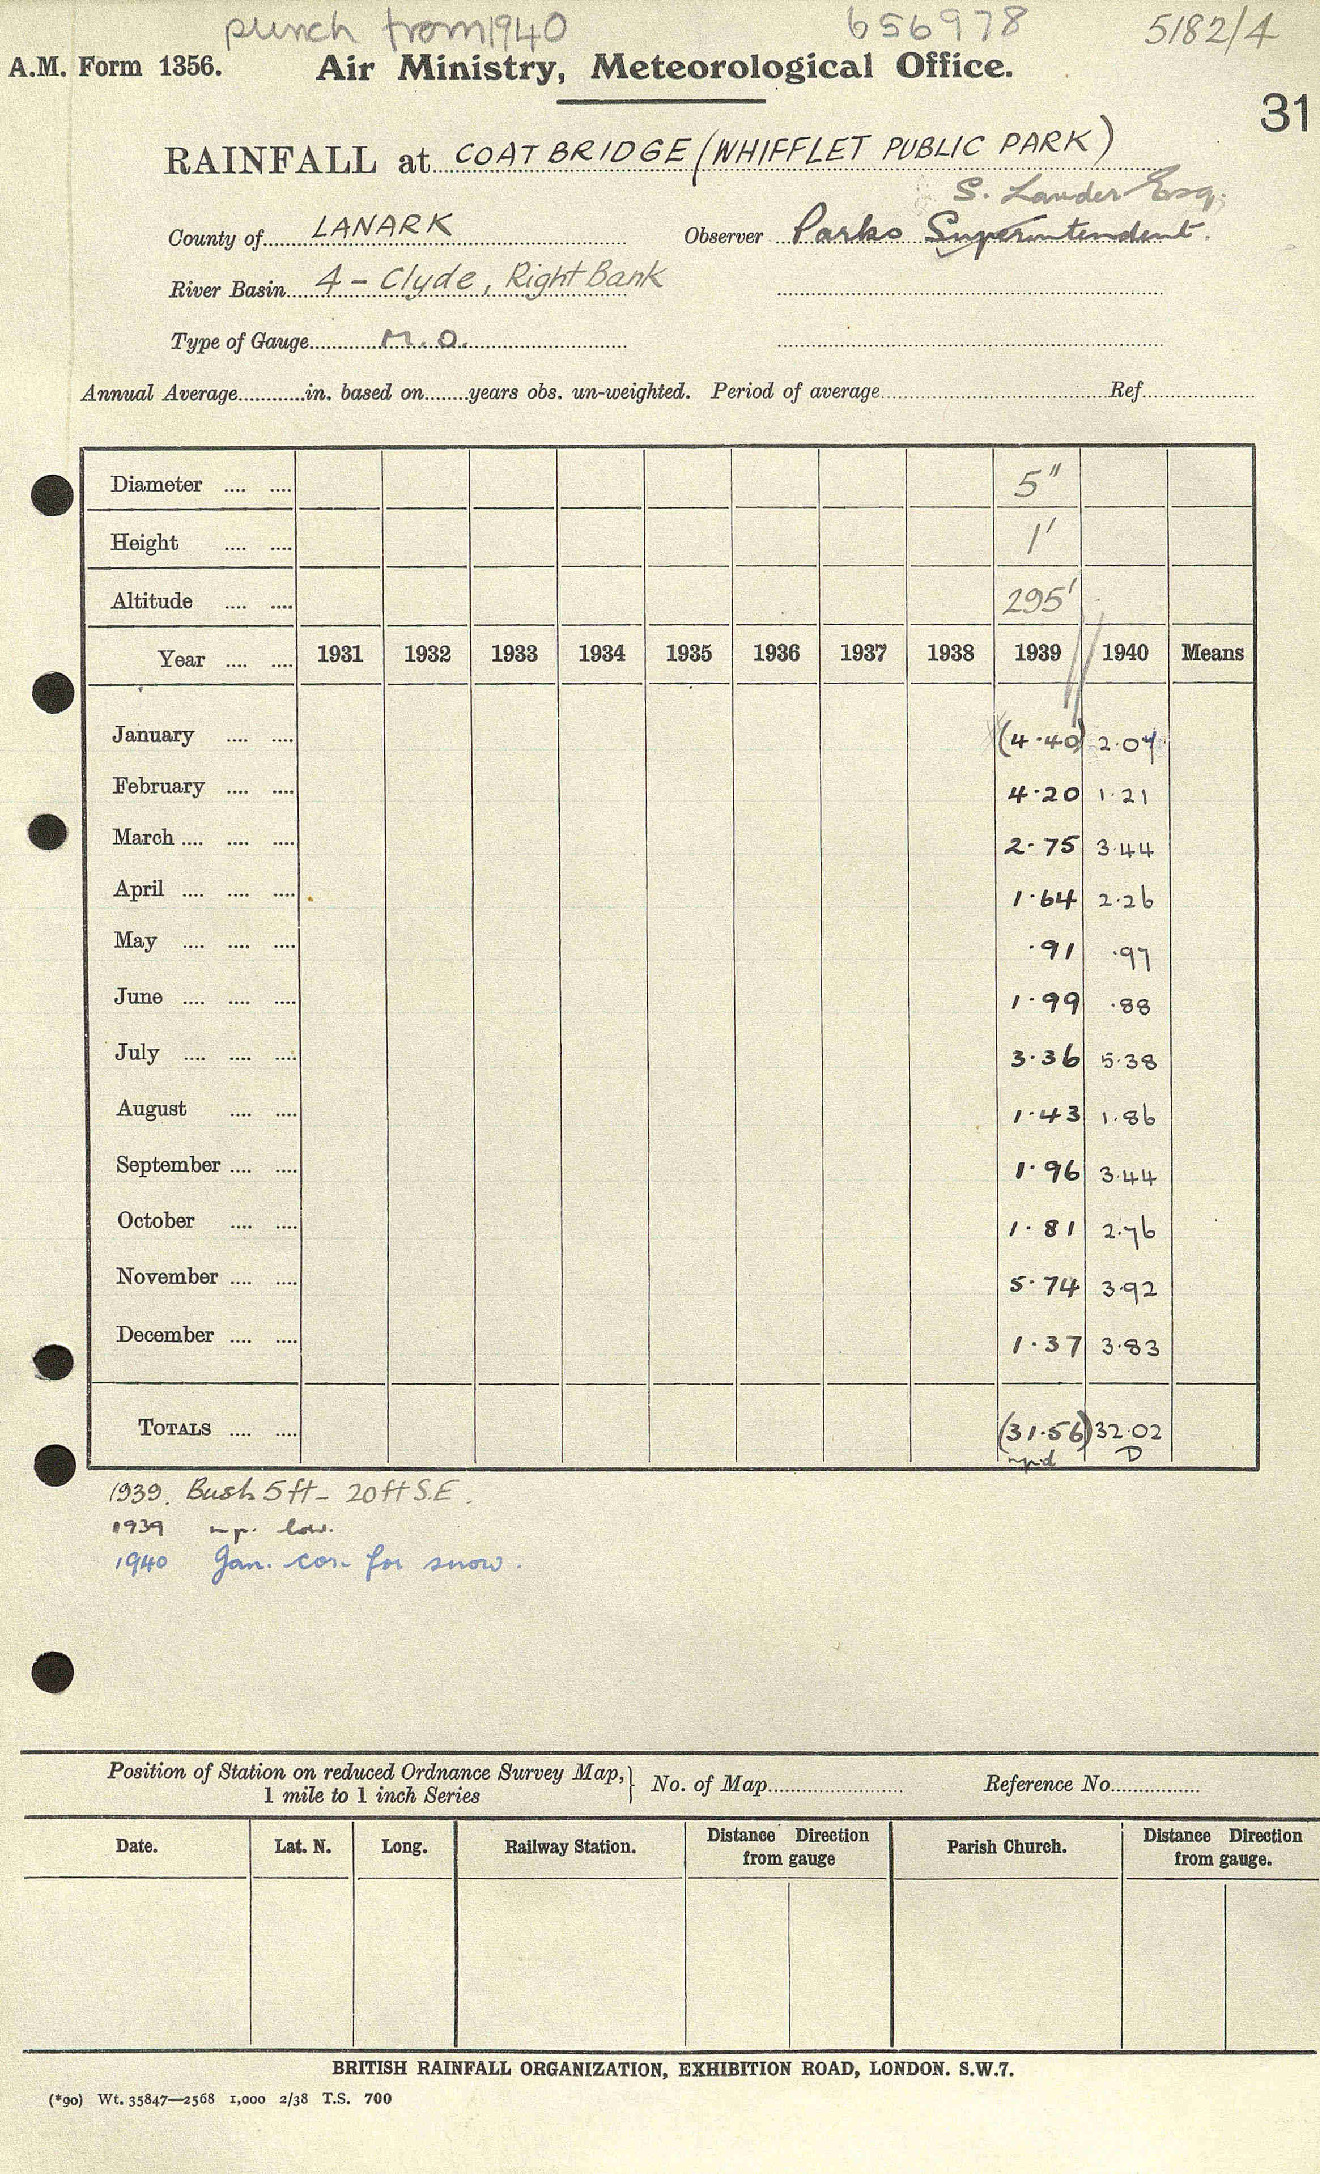 punch from 1940 656978 5182/4
A.M. Form 1356. Air Ministry, Meteorological Office.
31
RAINFALL at COATBRIDGE (WHIFFLET PUBLIC PARK)
S. Lander Esq.
County of LANARK Observer Parks Superintendent.
River Basin 4 - Clyde, Right Bank
Type of Gauge M.O.
Annual Average............in. based on........years obs. un-weighted. Period of average............Ref............
Diameter .... .... 5"
Height .... .... 1'
Altitude .... .... 295'
Year .... .... 1931 1932 1933 1934 1935 1936 1937 1938 1939 1940 Means
January .... .... (4.40) 2.07
February .... .... 4.20 1.21
March .... .... .... 2.75 3.44
April .... .... .... 1.64 2.26
May .... .... .... .91 .97
June .... .... .... 1.99 .88
July .... .... .... 3.36 5.38
August .... .... 1.43 1.86
September .... .... 1.96 3.44
October .... .... 1.81 2.76
November .... .... 5.74 3.92
December .... .... 1.37 3.83
TOTALS .... .... (31.56) 32.02
D
1939. Bush 5ft - 20ft S.E.
1939 np. low.
1940 Jan. cor. for snow.
Position of Station on reduced Ordnance Survey Map,} No. of Map............ Reference No............
1 mile to 1 inch Series
Date. Lat. N. Long. Railway Station. Distance Direction Parish Church. Distance Direction
from gauge from gauge.
BRITISH RAINFALL ORGANIZATION, EXHIBITION ROAD, LONDON. S.W.7.
(*90) Wt. 35847—2568 1,000 2/38 T.S. 700